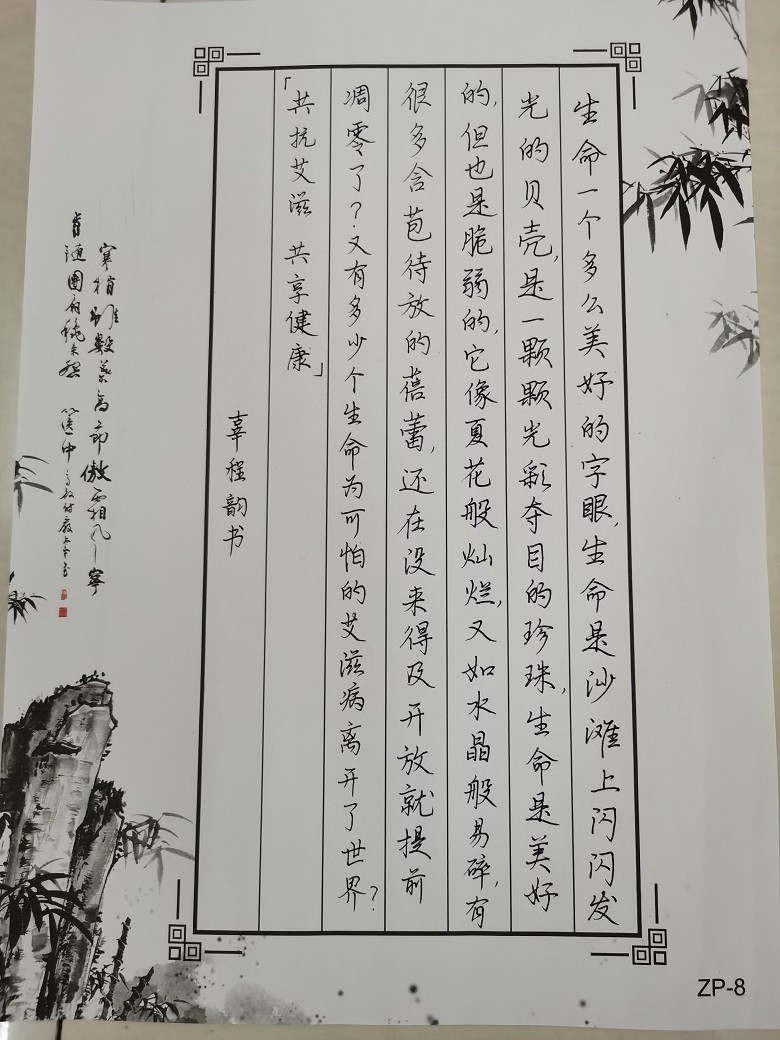 生命一个多么美好的字眼,生命是沙滩上闪闪发
光的贝壳,是一颗颗光彩夺目的珍珠,生命是美好
的,但也是脆弱的,它像夏花般灿烂,又如水晶般易碎,有
很多含苞待放的蓓蕾,还在没来得及开放就提前
凋零了?又有多少个生命为可怕的艾滋病离开了世界?
「共抗艾滋 共享健康」
辜程韵书
ZP-8